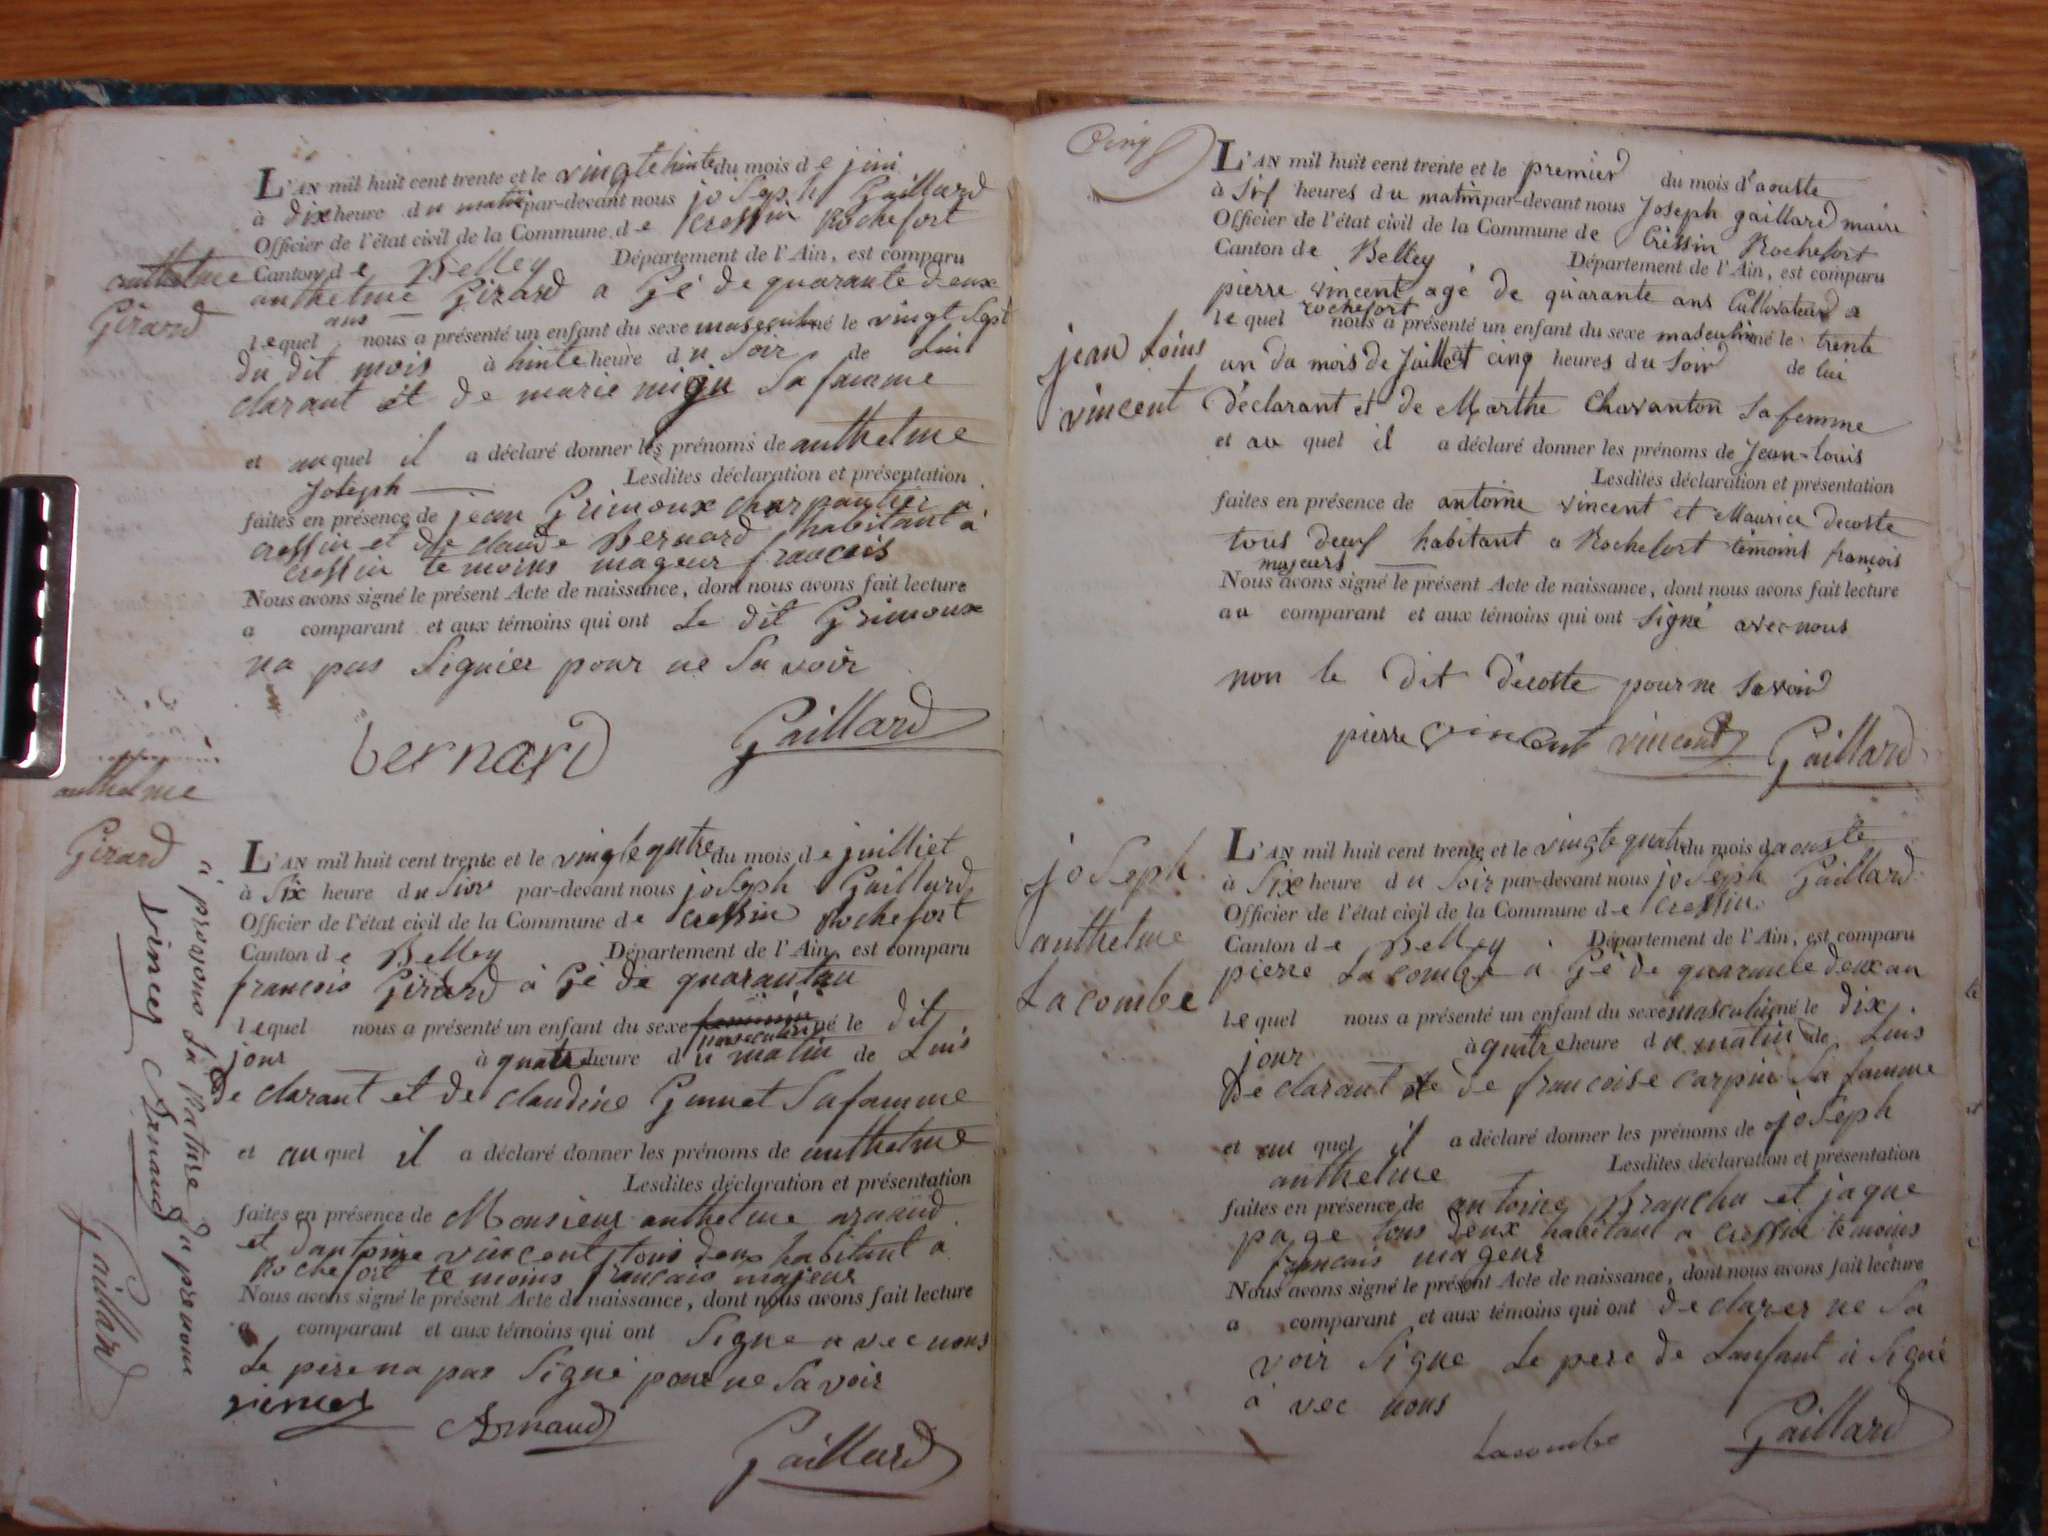 L'AN mil huit cent trente et le vingtehuite du mois de juin
à dix heure du matin par-devant nous joSeph Gaillard
Officier de l'état civil de la Commune de Cressin Rochefort
Canton de Belley Département de l'Ain, est comparu
anthelme Girard a Gé de quarante deux
ans
lequel nous a présenté un enfant du sexe masculin né le vingt Sept
du dit mois à huite heure du Soir de Lui
clarant et de marie sa famme
et auquel il a déclaré donner les prénoms de anthelme
Joseph Lesdites déclaration et présentation
faites en présence de jean Grimoux charpantier a
cressin et de claude Bernard habitant à
cressin temoins mageur francais
Nous avons signé le présent Acte de naissance, dont nous avons fait lecture
a comparant et aux témoins qui ont Le dit Grimoux
na pas Signier pour ne Savoir
bernard Gaillard
anthelme
Girard
L'AN mil huit cent trente et le vingtequtre du mois de juilliet
à Six heure du Siore par-devant nous joSeph Gaillard
Officier de l'état civil de la Commune de cressin Rochefort
Canton de Belley Département de l'Ain, est comparu
francois Girard à Gé de quarantan
lequel nous a présenté un enfant du sexe feminin né le dit
masculin
jour à quatre heure du matin de Luis
De clarant et de claudine Gunnet Safamme
et auquel il a déclaré donner les prénoms de anthelme
Lesdites déclaration et présentation
faites en présence de Monsieur anthelme arnaud
et dantoine vincent tous deux habitant a
Rochefort temoins francais majeur
Nous avons signé le présent Acte de naissance, dont nous avons fait lecture
comparant et aux témoins qui ont Signe avec nous
Le père na pas Signé pour ne Savoir
vincet Arnaud Gaillard
anthelme
Girard
vincet Arnaud Gaillard
Cinq
L'AN mil huit cent trente et le premier du mois d'aouste
à Sif heures du matin par-devant nous Joseph gaillard maire
Officier de l'état civil de la Commune de Cressin Rochefort
Canton de Belley, Département de l'Ain, est comparu
pierre vincent agé de quarante ans Cultivateur a
rochefort
lequel nous a présenté un enfant du sexe masculin né le trente
un du mois de Juillet à cinq heures du Soir de lui
déclarant et de Marthe Chavanton Sa femme
et au quel il a déclaré donner les prénoms de Jean-louis
Lesdites déclaration et présentation
faites en présence de antoine vincent et Maurice decoste
tous deuf habitant a Rochefort témoins françois
majeurs
Nous avons signé le présent Acte de naissance, dont nous avons fait lecture
au comparant et aux témoins qui ont signé avec nous
non le dit décoste pour ne Savoir
pierre vincent vincent Gaillard
jean Loius
vincent
L'AN mil huit cent trente et le vingte quatre du mois daouste
à Six heure du Soir par-devant nous joSeph Gaillard
Officier de l'état civil de la Commune de Cressin
Canton de Belley Département de l'Ain, est comparu
pierre Lacombe a Gé de quarante deux an
lequel nous a présenté un enfant du sexe masculin né le dix
jour à quatre heure du matin de Luis
De clarant et de francoise carpin Sa famme
et au quel il a déclaré donner les prénoms de joSéph
anthelme Lesdites déclaration et présentation
faites en présence de antoine Branchu et jaque
page tous deux habitant a Cressin temoins
francais mageur
Nous avons signé le présent Acte de naissance, dont nous avons fait lecture
a comparant et aux témoins qui ont declarer ne Sa
voir Signe Le pere de Lanfant à Signé
à vec nous
Lacombe Gaillard
joSeph
anthelme
Lacombe